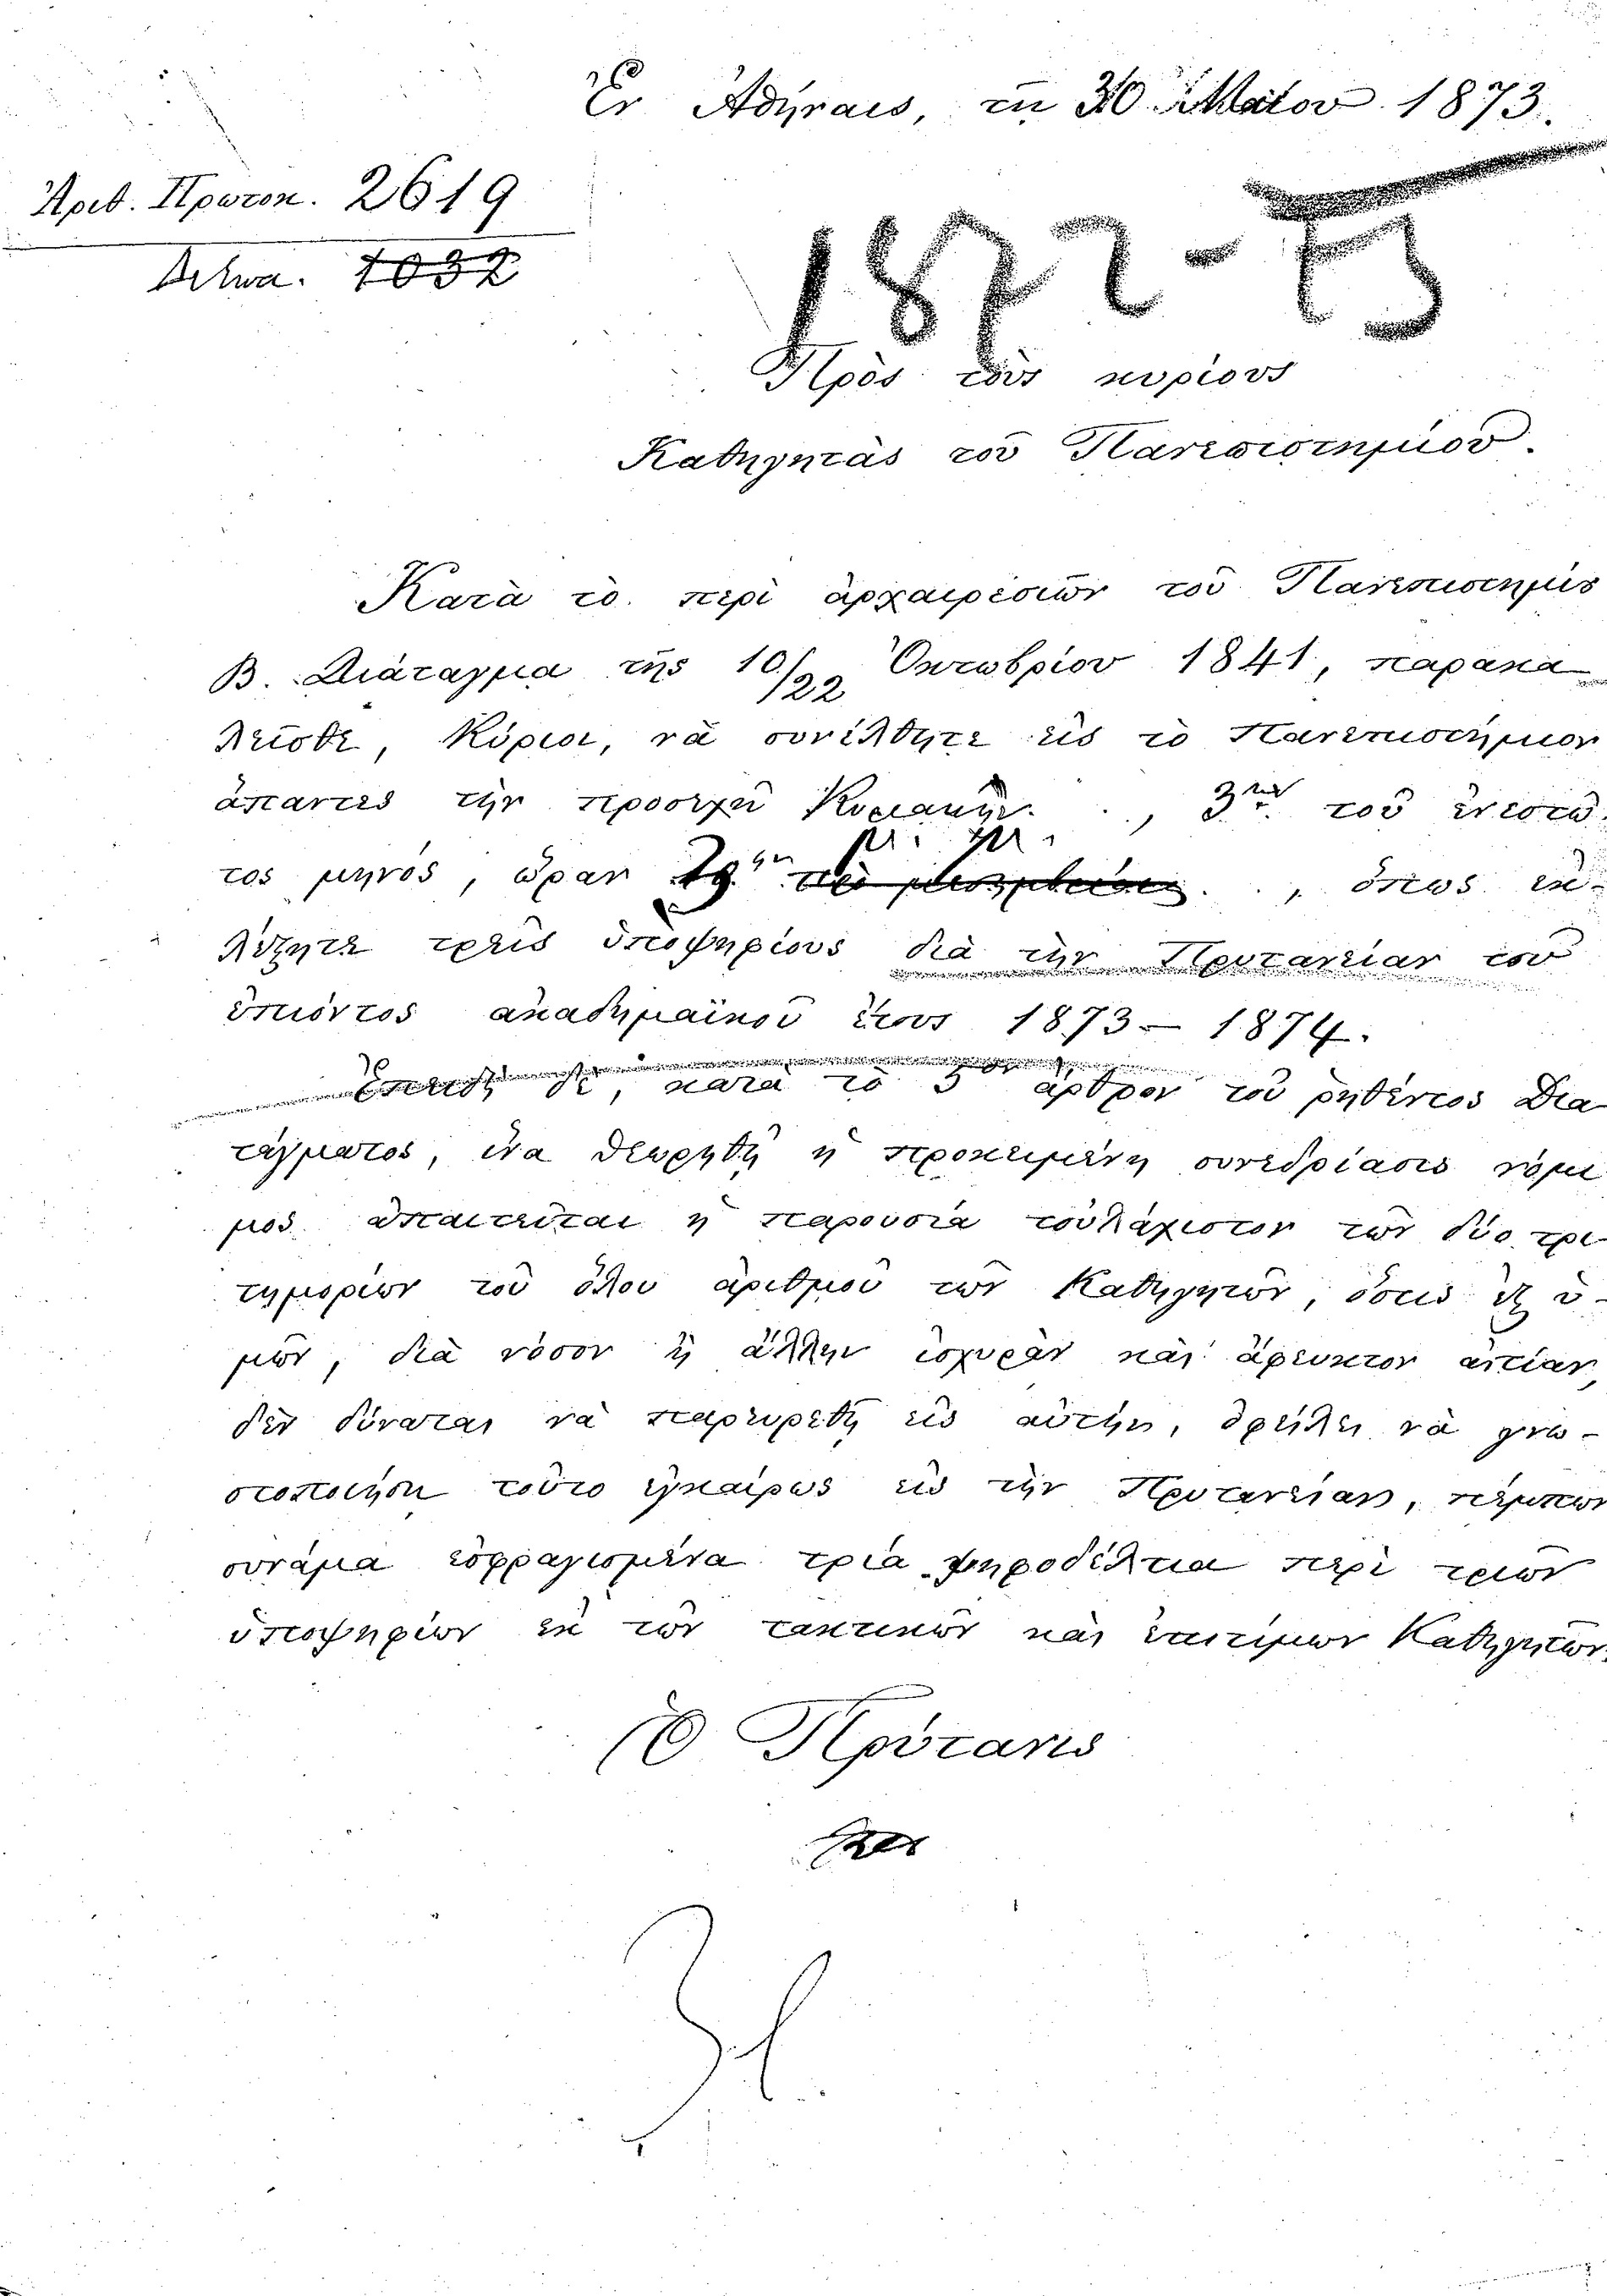 Ἐν Ἀθήναις, τῇ 30 Μαΐου 1873.
Ἀριθ. Πρωτοκ. 2619
Διεκπ. 1032
1872-73
Πρὸς τοὺς κυρίους
Καθηγητὰς τοῦ Πανεπιστημίου.
Κατὰ τὸ περὶ ἀρχαιρεσιῶν τοῦ Πανεπιστημίου
Β. Διάταγμα τῆς 10/22 Ὀκτωβρίου 1841, παρακα
λεῖσθε, Κύριοι, νὰ συνέλθητε εἰς τὸ Πανεπιστήμιον
ἅπαντες τὴν προσεχῆ Κυριακὴν, 3ην τοῦ ἐνεστῶ
τος μηνός, ὥραν μ. μ., ὅπως ἐκ-
λέξητε τρεῖς ὑποψηφίους διὰ τὴν Πρυτανείαν τοῦ
ἐπιόντος ἀκαδημαϊκοῦ ἔτους 1873 – 1874.
Ἐπειδὴ δὲ, κατὰ τὸ 5ον ἄρθρον τοῦ ῥηθέντος Δια
τάγματος, ἵνα θεωρηθῇ ἡ προκειμένη συνεδρίασις νόμι
μος ἀπαιτεῖται ἡ παρουσία τοὐλάχιστον τῶν δύο τρι
τημορίων τοῦ ὅλου ἀριθμοῦ τῶν Καθηγητῶν, ὅστις ἐξ ὑ-
μῶν, διὰ νόσον ἢ ἄλλην ἰσχυρὰν καὶ ἄφευκτον αἰτίαν,
δὲν δύναται νὰ παρευρεθῇ εἰς αὐτὴν, ὀφείλει νὰ γνω-
στοποιήσῃ τοῦτο ἐγκαίρως εἰς τὴν Πρυτανείαν, πέμπων
συνάμα ἐσφραγισμένα τρία ψηφοδέλτια περὶ τριῶν
ὑποψηφίων ἐκ τῶν τακτικῶν καὶ ἐπιτίμων Καθηγητῶν.
Ὁ Πρύτανις